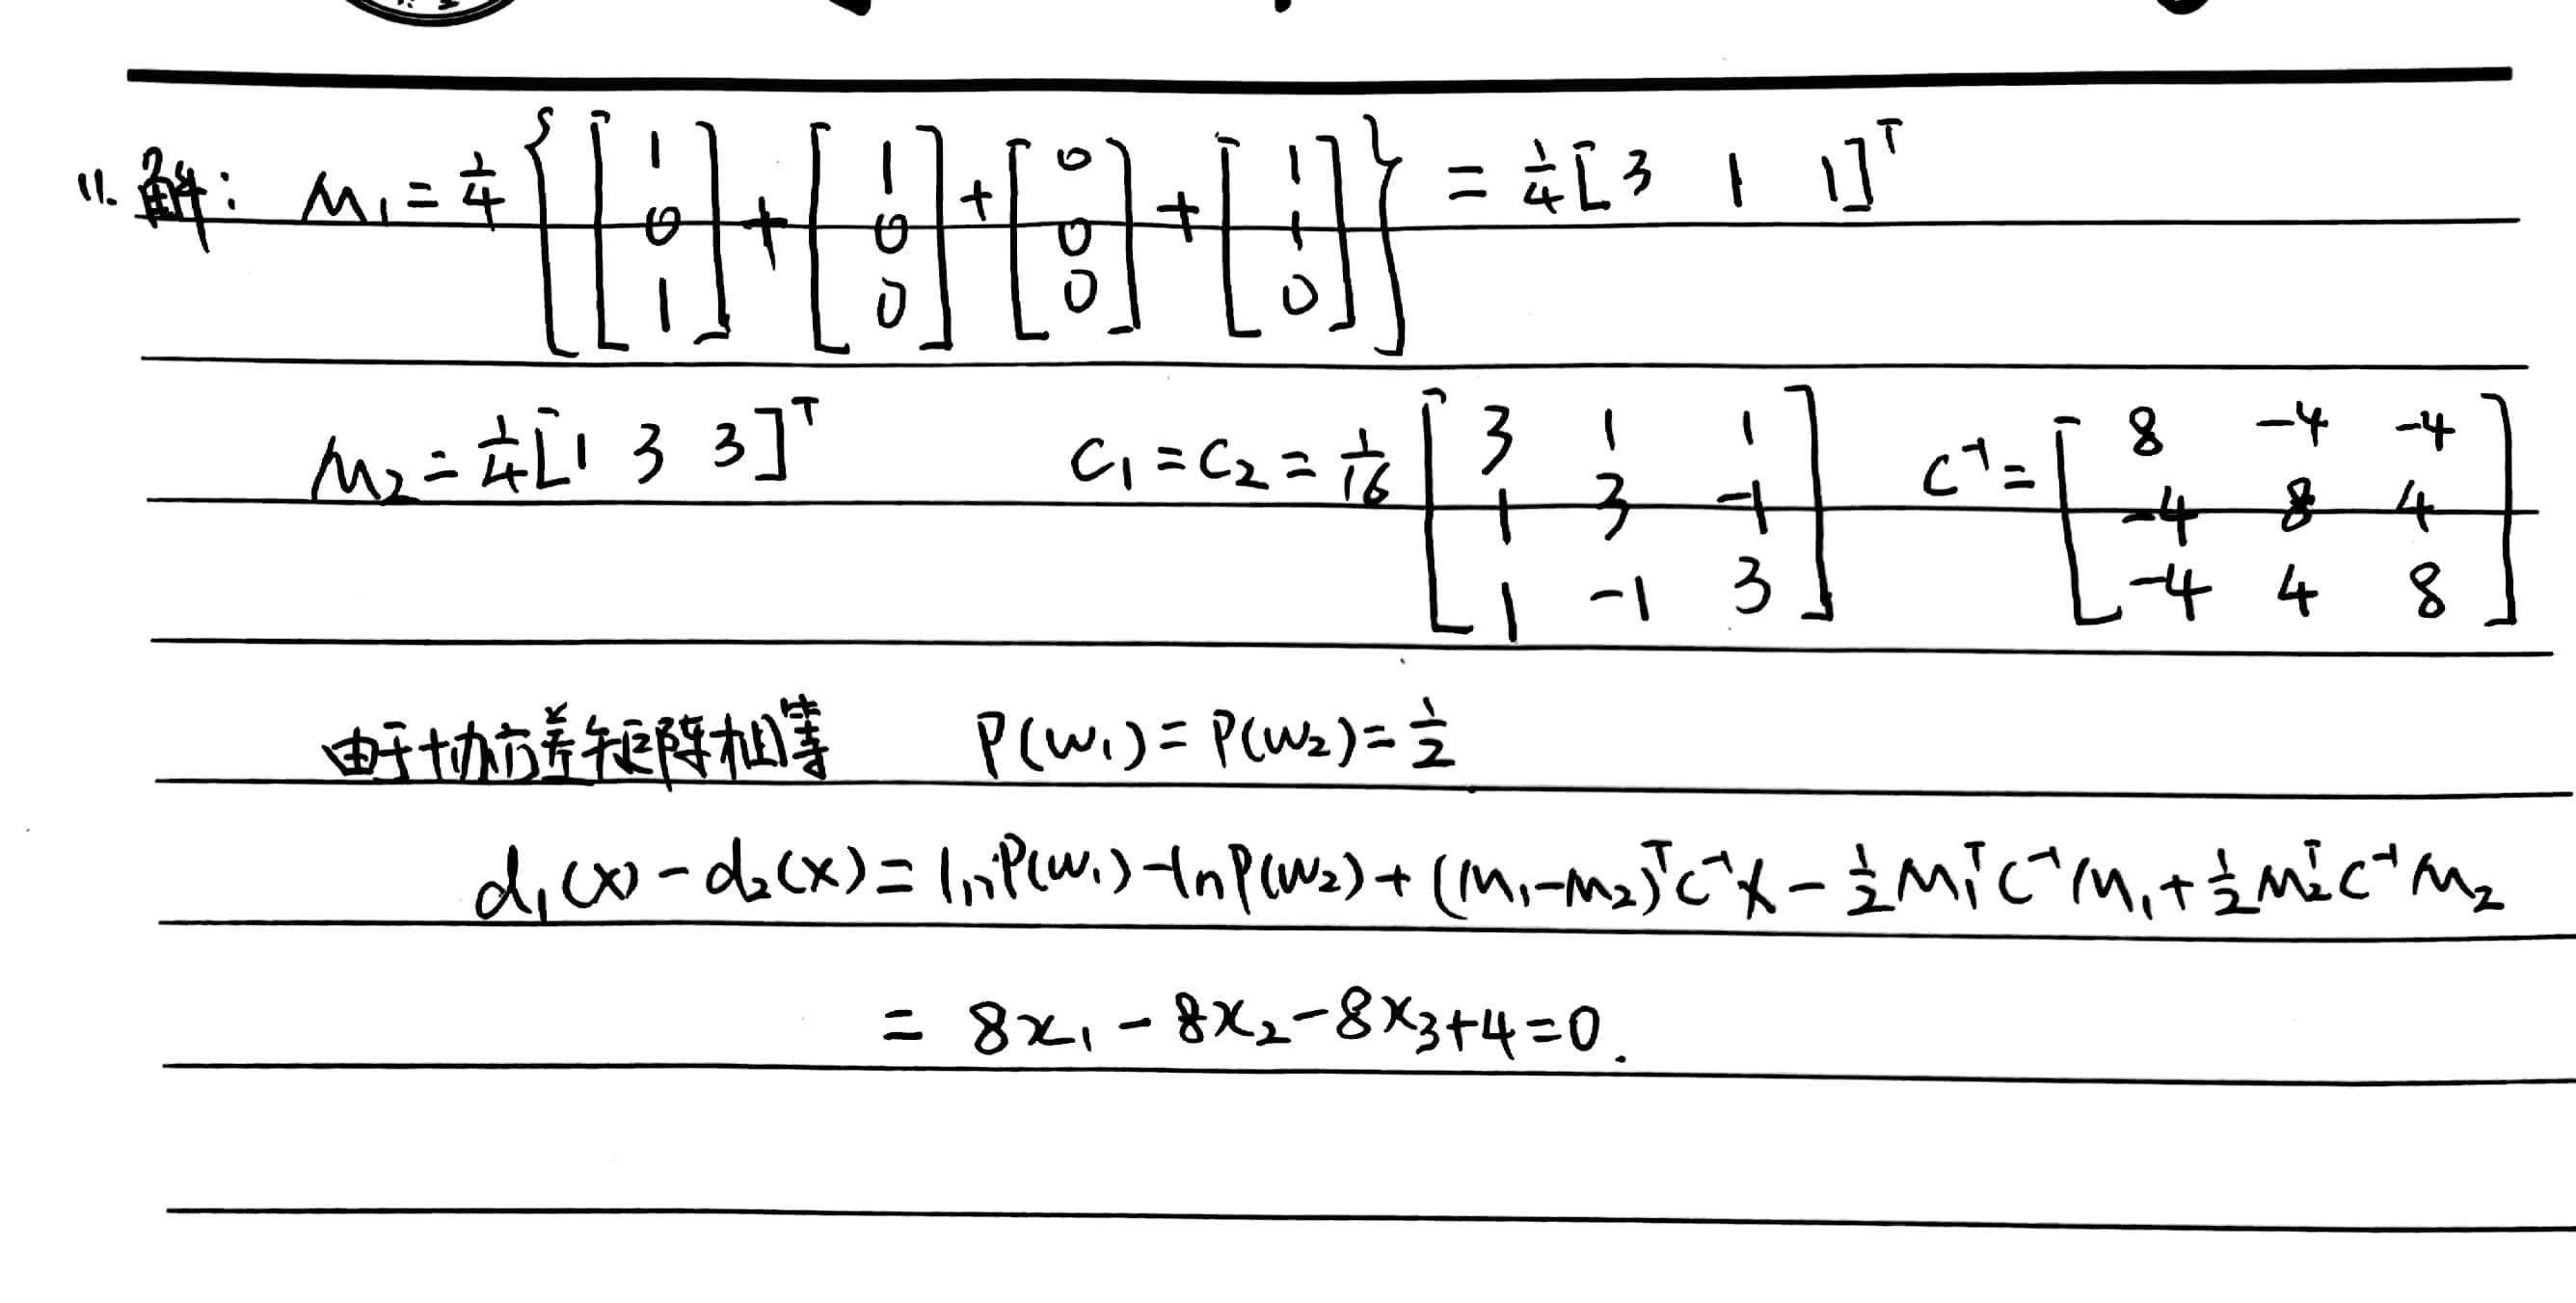 11. 解: M₁ = 1/4 { [1 0 1] + [1 0 0] + [0 0 0] + [1 1 0] } = 1/4 [3 1 1]ᵀ
M₂ = 1/4 [1 3 3]ᵀ C₁ = C₂ = 1/16 [3 1 1; 1 3 -1; 1 -1 3] C⁻¹ = [8 -4 -4; -4 8 4; -4 4 8]
由于协方差矩阵相等 P(w₁) = P(w₂) = 1/2
d₁(x) - d₂(x) = lnP(w₁) - lnP(w₂) + (M₁-M₂)ᵀC⁻¹X - 1/2 M₁ᵀC⁻¹M₁ + 1/2 M₂ᵀC⁻¹M₂
= 8x₁ - 8x₂ - 8x₃ + 4 = 0.